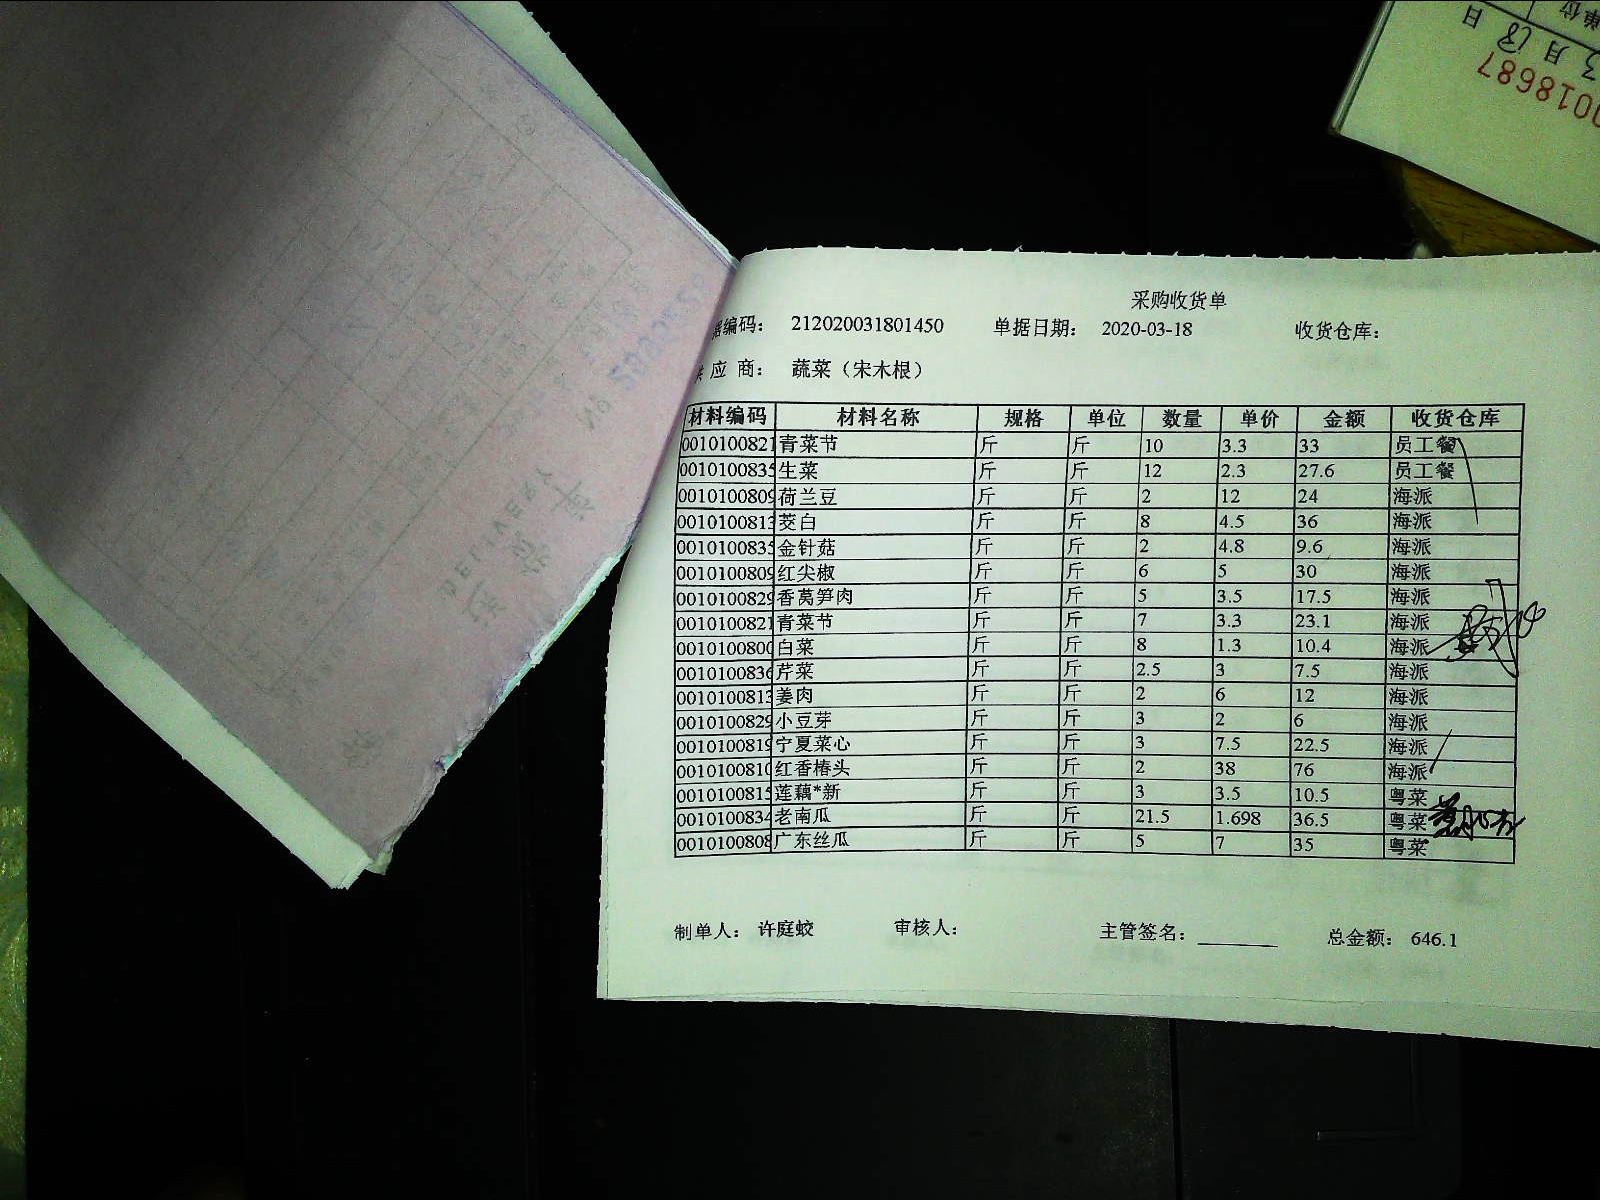 单位
3月18日
0018687
DELIVERY
采购收货单
据编码： 212020031801450 单据日期： 2020-03-18 收货仓库：
应 商： 蔬菜（宋木根）
材料编码 材料名称 规格 单位 数量 单价 金额 收货仓库
0010100821 青菜节 斤 斤 10 3.3 33 员工餐
0010100835 生菜 斤 斤 12 2.3 27.6 员工餐
0010100809 荷兰豆 斤 斤 2 12 24 海派
0010100813 茭白 斤 斤 8 4.5 36 海派
0010100835 金针菇 斤 斤 2 4.8 9.6 海派
0010100809 红尖椒 斤 斤 6 5 30 海派
0010100829 香莴笋肉 斤 斤 5 3.5 17.5 海派
0010100821 青菜节 斤 斤 7 3.3 23.1 海派
0010100800 白菜 斤 斤 8 1.3 10.4 海派
0010100836 芹菜 斤 斤 2.5 3 7.5 海派
0010100813 姜肉 斤 斤 2 6 12 海派
0010100829 小豆芽 斤 斤 3 2 6 海派
0010100819 宁夏菜心 斤 斤 3 7.5 22.5 海派
0010100810 红香椿头 斤 斤 2 38 76 海派
0010100815 莲藕*新 斤 斤 3 3.5 10.5 粤菜
0010100834 老南瓜 斤 斤 21.5 1.698 36.5 粤菜
0010100808 广东丝瓜 斤 斤 5 7 35 粤菜
制单人： 许庭蛟 审核人： 主管签名： 总金额： 646.1